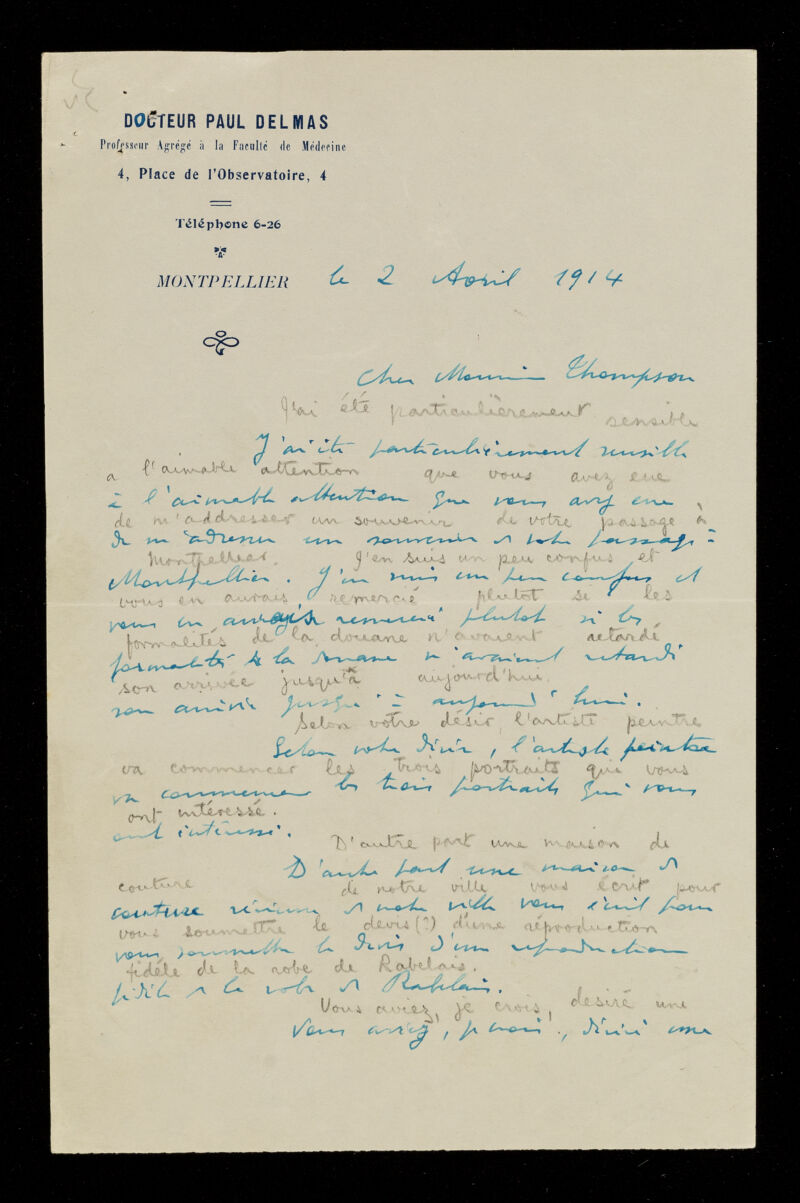 DOCTEUR PAUL DELMAS
Professeur Agrégé à la Faculté de Médecine
4, Place de l'Observatoire, 4
Téléphone 6-26
MONTPELLIER le 2 Avril 1914
Cher Monsieur Thompson
J'ai été particulièrement sensible
J'ai été particulièrement sensible
a l'aimable attention que vous avez eue
à l'aimable attention que vous avez eue
de m'addresser un souvenir de votre passage à
de m'adresser un souvenir de votre passage à
Montpellier. J'en suis un peu confus et
Montpellier. J'en suis un peu confus et
vous en aurais remercié plutot si les
vous en aurais remercié plutot si les
formalités de la douane n'avaient retardé
formalités de la douane n'avaient retardé
son arrivée jusqu'à aujourd'hui.
son arrivée jusqu'à aujourd'hui.
Selon votre désir, l'artiste peintre
Selon votre désir, l'artiste peintre
va commencer les trois portraits qui vous
va commencer les trois portraits qui vous
ont intéressé.
ont intéressé.
D'autre part une maison de
D'autre part une maison de
couture de notre ville vous écrit pour
couture de notre ville vous écrit pour
vous soumettre le devis(?) d'une réproduction
vous soumettre le devis d'une reproduction
fidèle de la robe de Rabelais.
fidèle de la robe de Rabelais.
Vous aviez, je crois, desiré une
Vous aviez, je crois, désiré une